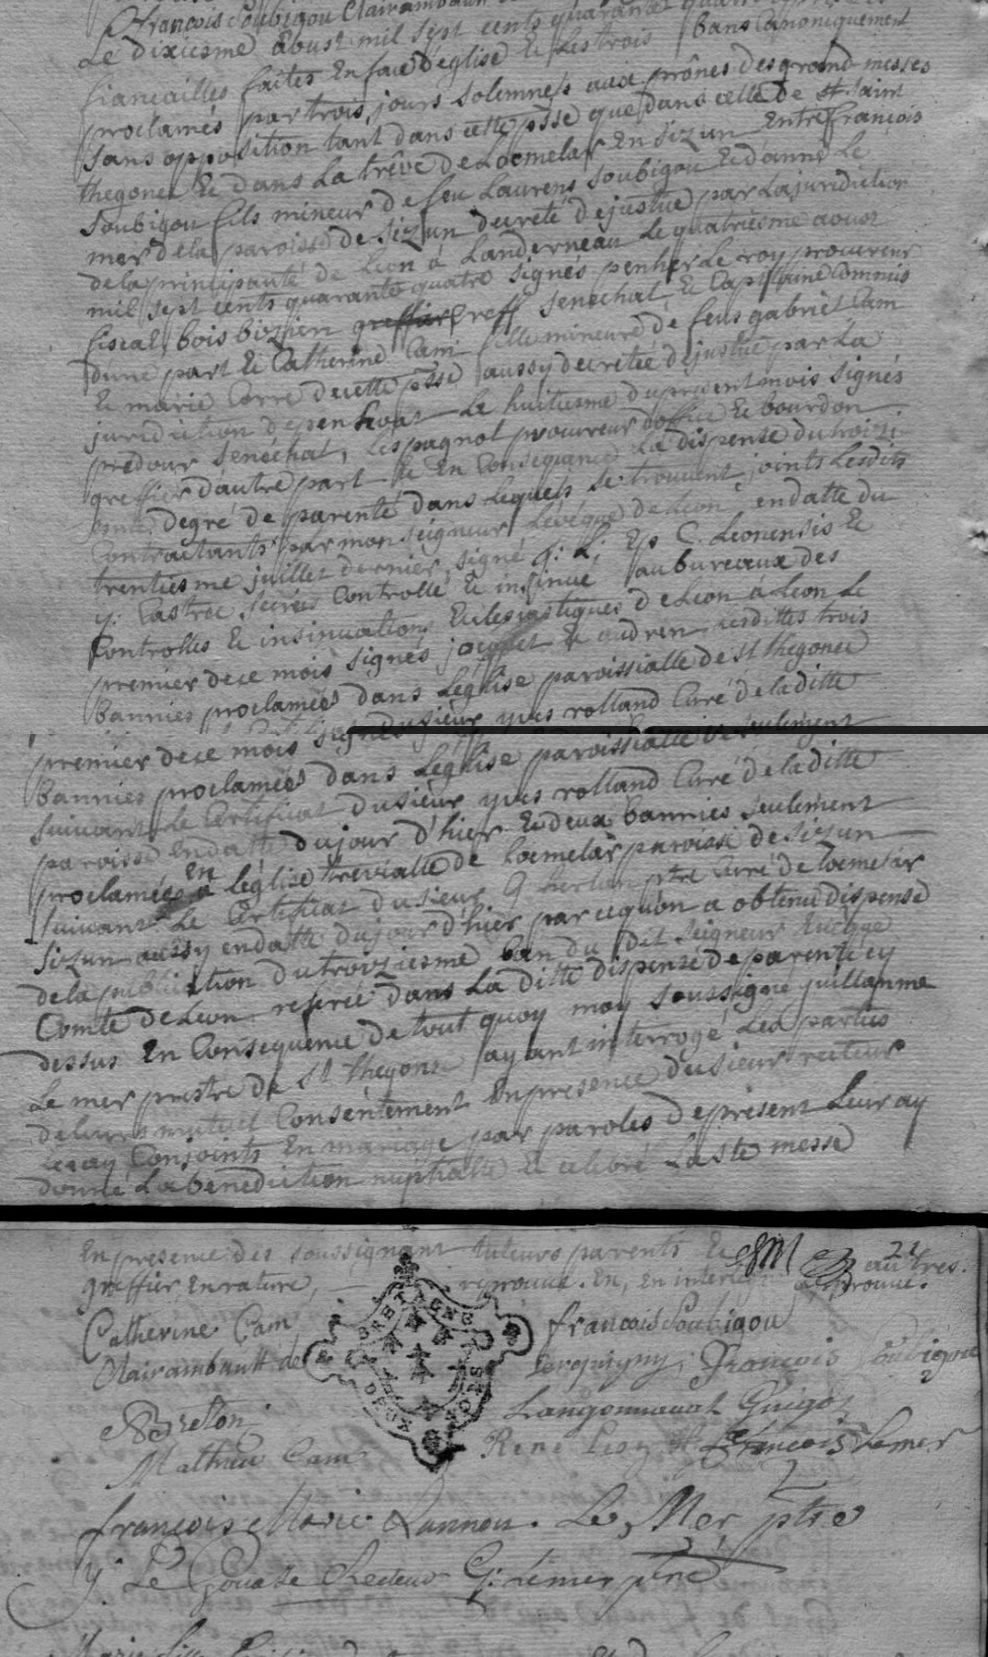 François Soubigou Clairambault
Le dixiesme Aoust mil sept cents quarante quatre
fiancailles faites En face d'église Et les trois bans Canoniquement
proclamés par trois jours solemnels aux prônes des grand messes
sans opposition tant dans cette psse que dans celle de st saint
thegonec Et dans La trêve de Locmelar En sizun Entre françois
Soubigou fils mineur de feu Laurens Soubigou Et d'anne Le
mer de la paroisse de Sizun decreté de justice par La juridiction
de la principauté de Leon à Landerneau Le quatriesme aoust
mil sept cents quarante quatre signés penher Le roy procureur
fiscal, bois bizien greffier greff senechal, Et Capitaine Commis
dune part Et Catherine Cam fille mineure de feus gabriel Cam
Et marie Corre de cette psse aussy decretée de justice par La
juridiction de penhoat Le huitiesme du present mois signés
predour senechal, Lespagnol procureur d'office Et bourdon
greffier d'autre part Et En Consequence La dispense du troizi-
esme degré de parenté dans Lequels se trouvent joints Lesdits
Contractants par monseigneur L'évêque de Leon en datte du
trentiesme juillet dernier signé j: L: Ep C. Leonensis Et
y: Castrec secrét Controllé Et insinué au bureaux des
Controlles Et insinuations Eclesiastiques de Leon à Leon Le
premier de ce mois signés jacquet Et audren Lesdittes trois
Bannies proclamées dans L'eglise paroissialle de st thegonec
premier de ce mois signés du sieur yves rolland Curé de laditte
Bannies proclamées dans L'eglise paroissialle Et seulement
suivant Le Certificat du sieur yves rolland Curé de laditte
paroisse En datte du jour d'hier Et deux bannies seulement
proclamées en à l'église treviale de Locmelar paroisse de sizun
suivant Le Certificat du sieur G herlan ptre Curé de Locmelar
Sizun aussy en datte du jour d'hier par ce qu'on a obtenu dispense
de la publication du troiziesme ban du dit Seigneur Eveque
Comte de Leon referée dans La ditte dispense de parenté cy
dessus En Consequence de tout quoy moy soussigné guillaume
Le mer prestre de st thegonec ayant interrogé Les parties
de leur mutuel Consentement En presence du sieur recteur
Les ay Conjoints En mariage par paroles de present Leur ay
donné La benediction nuptialle Et celebré La ste messe
En presence des soussignant tuteurs parents Et autres.
greffier En rature, reprouvé. En, en interligne approuvé.
Catherine Cam françois Soubigou
Clairambault de Kerguigny, François Soubigou
Breton Langonnaval Guegot
Mathieu Cam René François Lemer
françois Marie Lannou. Le Mer ptre
y. Le Gouasse Recteur G: Lemer ptre